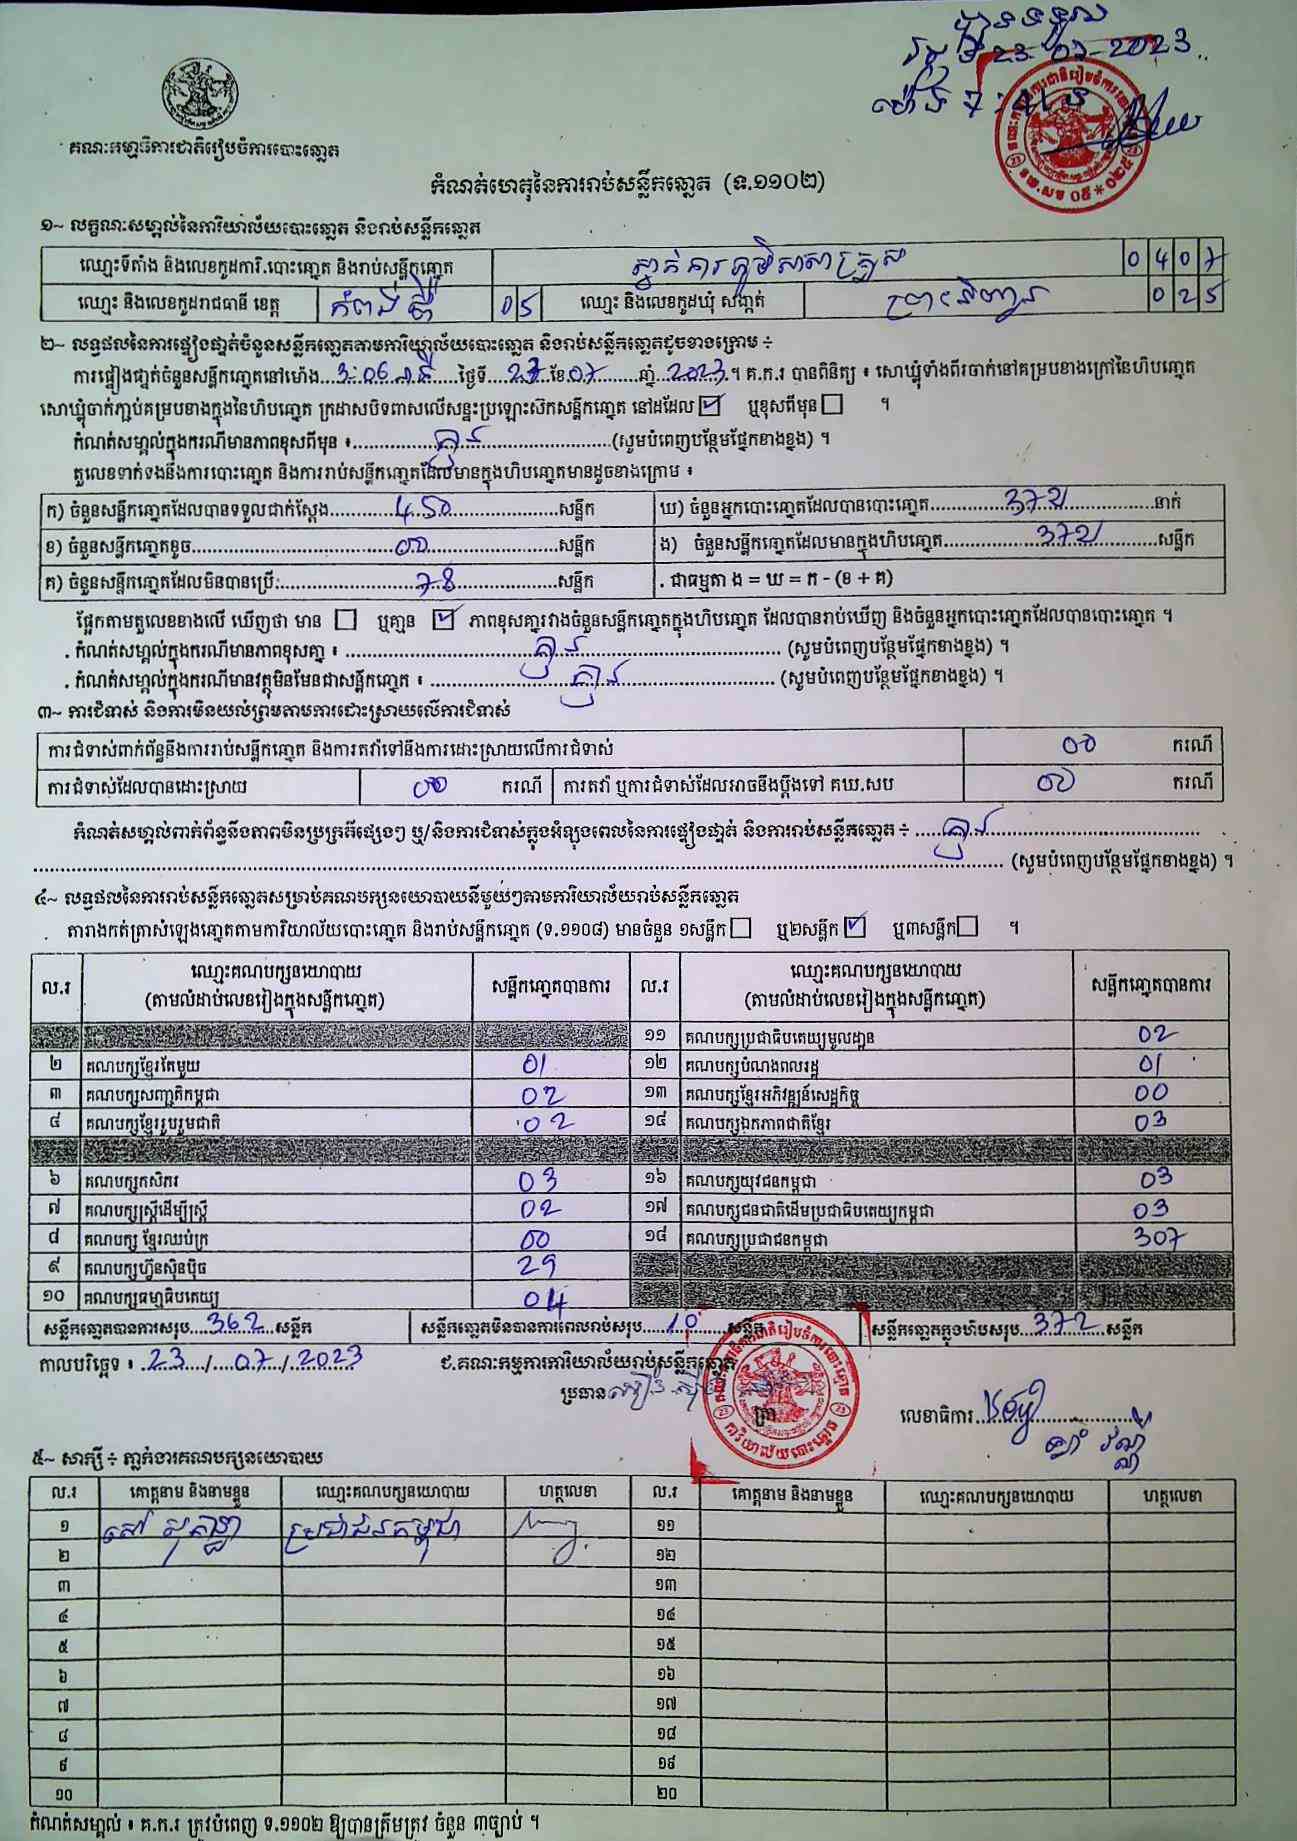 បានទទួល
ថ្ងៃទី 23-07-2023
ម៉ោង 7:41
គណៈកម្មាធិការជាតិរៀបចំការបោះឆ្នោត
កំណត់ហេតុនៃការរាប់សន្លឹកឆ្នោត (ទ.១១០២)
១~ លក្ខណៈសម្គាល់នៃការិយាល័យបោះឆ្នោត និងរាប់សន្លឹកឆ្នោត
ឈ្មោះទីតាំង និងលេខកូដការិ.បោះឆ្នោត និងរាប់សន្លឹកឆ្នោត 0407
ឈ្មោះ និងលេខកូដរាជធានី ខេត្ត កំពង់ស្ពឺ 05 ឈ្មោះ និងលេខកូដឃុំ សង្កាត់ 025
២~ លទ្ធផលនៃការផ្ទៀងផ្ទាត់ចំនួនសន្លឹកឆ្នោតតាមការិយាល័យបោះឆ្នោត និងរាប់សន្លឹកឆ្នោតដូចខាងក្រោម ៖
ការផ្ទៀងផ្ទាត់ចំនួនសន្លឹកឆ្នោតនៅម៉ោង 3:06 នាទី ថ្ងៃទី 23 ខែ 07 ឆ្នាំ 2023 ។ គ.ក.រ បានពិនិត្យ ៖ សោឃ្លុំទាំងពីរចាក់នៅគម្របខាងក្រៅនៃហិបឆ្នោត
សោឃ្លុំចាក់ភ្ជាប់គម្របខាងក្នុងនៃហិបឆ្នោត ក្រដាសបិទពាសលើសន្ទះប្រឡោះស៊កសន្លឹកឆ្នោត នៅដដែល ☑ ឬខុសពីមុន ☐ ។
កំណត់សម្គាល់ក្នុងករណីមានភាពខុសពីមុន ៖ គ្មាន (សូមបំពេញបន្ថែមផ្នែកខាងខ្នង) ។
តួលេខទាក់ទងនឹងការបោះឆ្នោត និងការរាប់សន្លឹកឆ្នោតដែលមានក្នុងហិបឆ្នោតមានដូចខាងក្រោម ៖
ក) ចំនួនសន្លឹកឆ្នោតដែលបានទទួលជាក់ស្តែង 450 សន្លឹក ឃ) ចំនួនអ្នកបោះឆ្នោតដែលបានបោះឆ្នោត 372 នាក់
ខ) ចំនួនសន្លឹកឆ្នោតខូច 00 សន្លឹក ង) ចំនួនសន្លឹកឆ្នោតដែលមានក្នុងហិបឆ្នោត 372 សន្លឹក
គ) ចំនួនសន្លឹកឆ្នោតដែលមិនបានប្រើ: 78 សន្លឹក . ជាធម្មតា ង = ឃ = ក - (ខ + គ)
ផ្អែកតាមតួលេខខាងលើ ឃើញថា មាន ☐ ឬគ្មាន ☑ ភាពខុសគ្នារវាងចំនួនសន្លឹកឆ្នោតក្នុងហិបឆ្នោត ដែលបានរាប់ឃើញ និងចំនួនអ្នកបោះឆ្នោតដែលបានបោះឆ្នោត ។
. កំណត់សម្គាល់ក្នុងករណីមានភាពខុសគ្នា ៖ គ្មាន (សូមបំពេញបន្ថែមផ្នែកខាងខ្នង) ។
. កំណត់សម្គាល់ក្នុងករណីមានវត្ថុមិនមែនជាសន្លឹកឆ្នោត ៖ គ្មាន (សូមបំពេញបន្ថែមផ្នែកខាងខ្នង) ។
៣~ ការជំទាស់ និងការមិនយល់ព្រមតាមការដោះស្រាយលើការជំទាស់
ការជំទាស់ពាក់ព័ន្ធនឹងការរាប់សន្លឹកឆ្នោត និងការតវ៉ាទៅនឹងការដោះស្រាយលើការជំទាស់ 00 ករណី
ការជំទាស់ដែលបានដោះស្រាយ 00 ករណី ការតវ៉ា ឬការជំទាស់ដែលអាចនឹងប្តឹងទៅ គឃ.សប 00 ករណី
កំណត់សម្គាល់ពាក់ព័ន្ធនឹងភាពមិនប្រក្រតីផ្សេងៗ ឬ/និងការជំទាស់ក្នុងអំឡុងពេលនៃការផ្ទៀងផ្ទាត់ និងការរាប់សន្លឹកឆ្នោត ៖ គ្មាន
(សូមបំពេញបន្ថែមផ្នែកខាងខ្នង) ។
៤~ លទ្ធផលនៃការរាប់សន្លឹកឆ្នោតសម្រាប់គណបក្សនយោបាយនីមួយៗតាមការិយាល័យរាប់សន្លឹកឆ្នោត
តារាងកត់ត្រាសំឡេងឆ្នោតតាមការិយាល័យបោះឆ្នោត និងរាប់សន្លឹកឆ្នោត (ទ.១១០៨) មានចំនួន ១សន្លឹក ☐ ឬ២សន្លឹក ☑ ឬ៣សន្លឹក ☐ ។
ល.រ ឈ្មោះគណបក្សនយោបាយ (តាមលំដាប់លេខរៀងក្នុងសន្លឹកឆ្នោត) សន្លឹកឆ្នោតបានការ ល.រ ឈ្មោះគណបក្សនយោបាយ (តាមលំដាប់លេខរៀងក្នុងសន្លឹកឆ្នោត) សន្លឹកឆ្នោតបានការ
១១ គណបក្សប្រជាធិបតេយ្យមូលដ្ឋាន 02
២ គណបក្សខ្មែរតែមួយ 01 ១២ គណបក្សបំណងពលរដ្ឋ 01
៣ គណបក្សសញ្ជាតិកម្ពុជា 02 ១៣ គណបក្សខ្មែរអភិវឌ្ឍន៍សេដ្ឋកិច្ច 00
៤ គណបក្សខ្មែររួបរួមជាតិ 02 ១៤ គណបក្សឯកភាពជាតិខ្មែរ 03
៦ គណបក្សកសិករ 03 ១៦ គណបក្សយុវជនកម្ពុជា 03
៧ គណបក្សស្ត្រីដើម្បីស្ត្រី 02 ១៧ គណបក្សជនជាតិដើមប្រជាធិបតេយ្យកម្ពុជា 03
៨ គណបក្ស ខ្មែរឈប់ក្រ 00 ១៨ គណបក្សប្រជាជនកម្ពុជា 307
៩ គណបក្សហ៊្វុនស៊ិនប៉ិច 29
១០ គណបក្សធម្មាធិបតេយ្យ 04
សន្លឹកឆ្នោតបានការសរុប 362 សន្លឹក សន្លឹកឆ្នោតមិនបានការពេលរាប់សរុប 10 សន្លឹក សន្លឹកឆ្នោតក្នុងហិបសរុប 372 សន្លឹក
កាលបរិច្ឆេទ ៖ 23/07/2023 ជ.គណៈកម្មការការិយាល័យរាប់សន្លឹកឆ្នោត
ប្រធាន ត្រា លេខាធិការ
៥~ សាក្សី ៖ ភ្នាក់ងារគណបក្សនយោបាយ
ល.រ គោត្តនាម និងនាមខ្លួន ឈ្មោះគណបក្សនយោបាយ ហត្ថលេខា ល.រ គោត្តនាម និងនាមខ្លួន ឈ្មោះគណបក្សនយោបាយ ហត្ថលេខា
១ ប្រជាជនកម្ពុជា ១១
២ ១២
៣ ១៣
៤ ១៤
៥ ១៥
៦ ១៦
៧ ១៧
៨ ១៨
៩ ១៩
១០ ២០
កំណត់សម្គាល់ ៖ គ.ក.រ ត្រូវបំពេញ ទ.១១០២ ឱ្យបានត្រឹមត្រូវ ចំនួន ៣ច្បាប់ ។